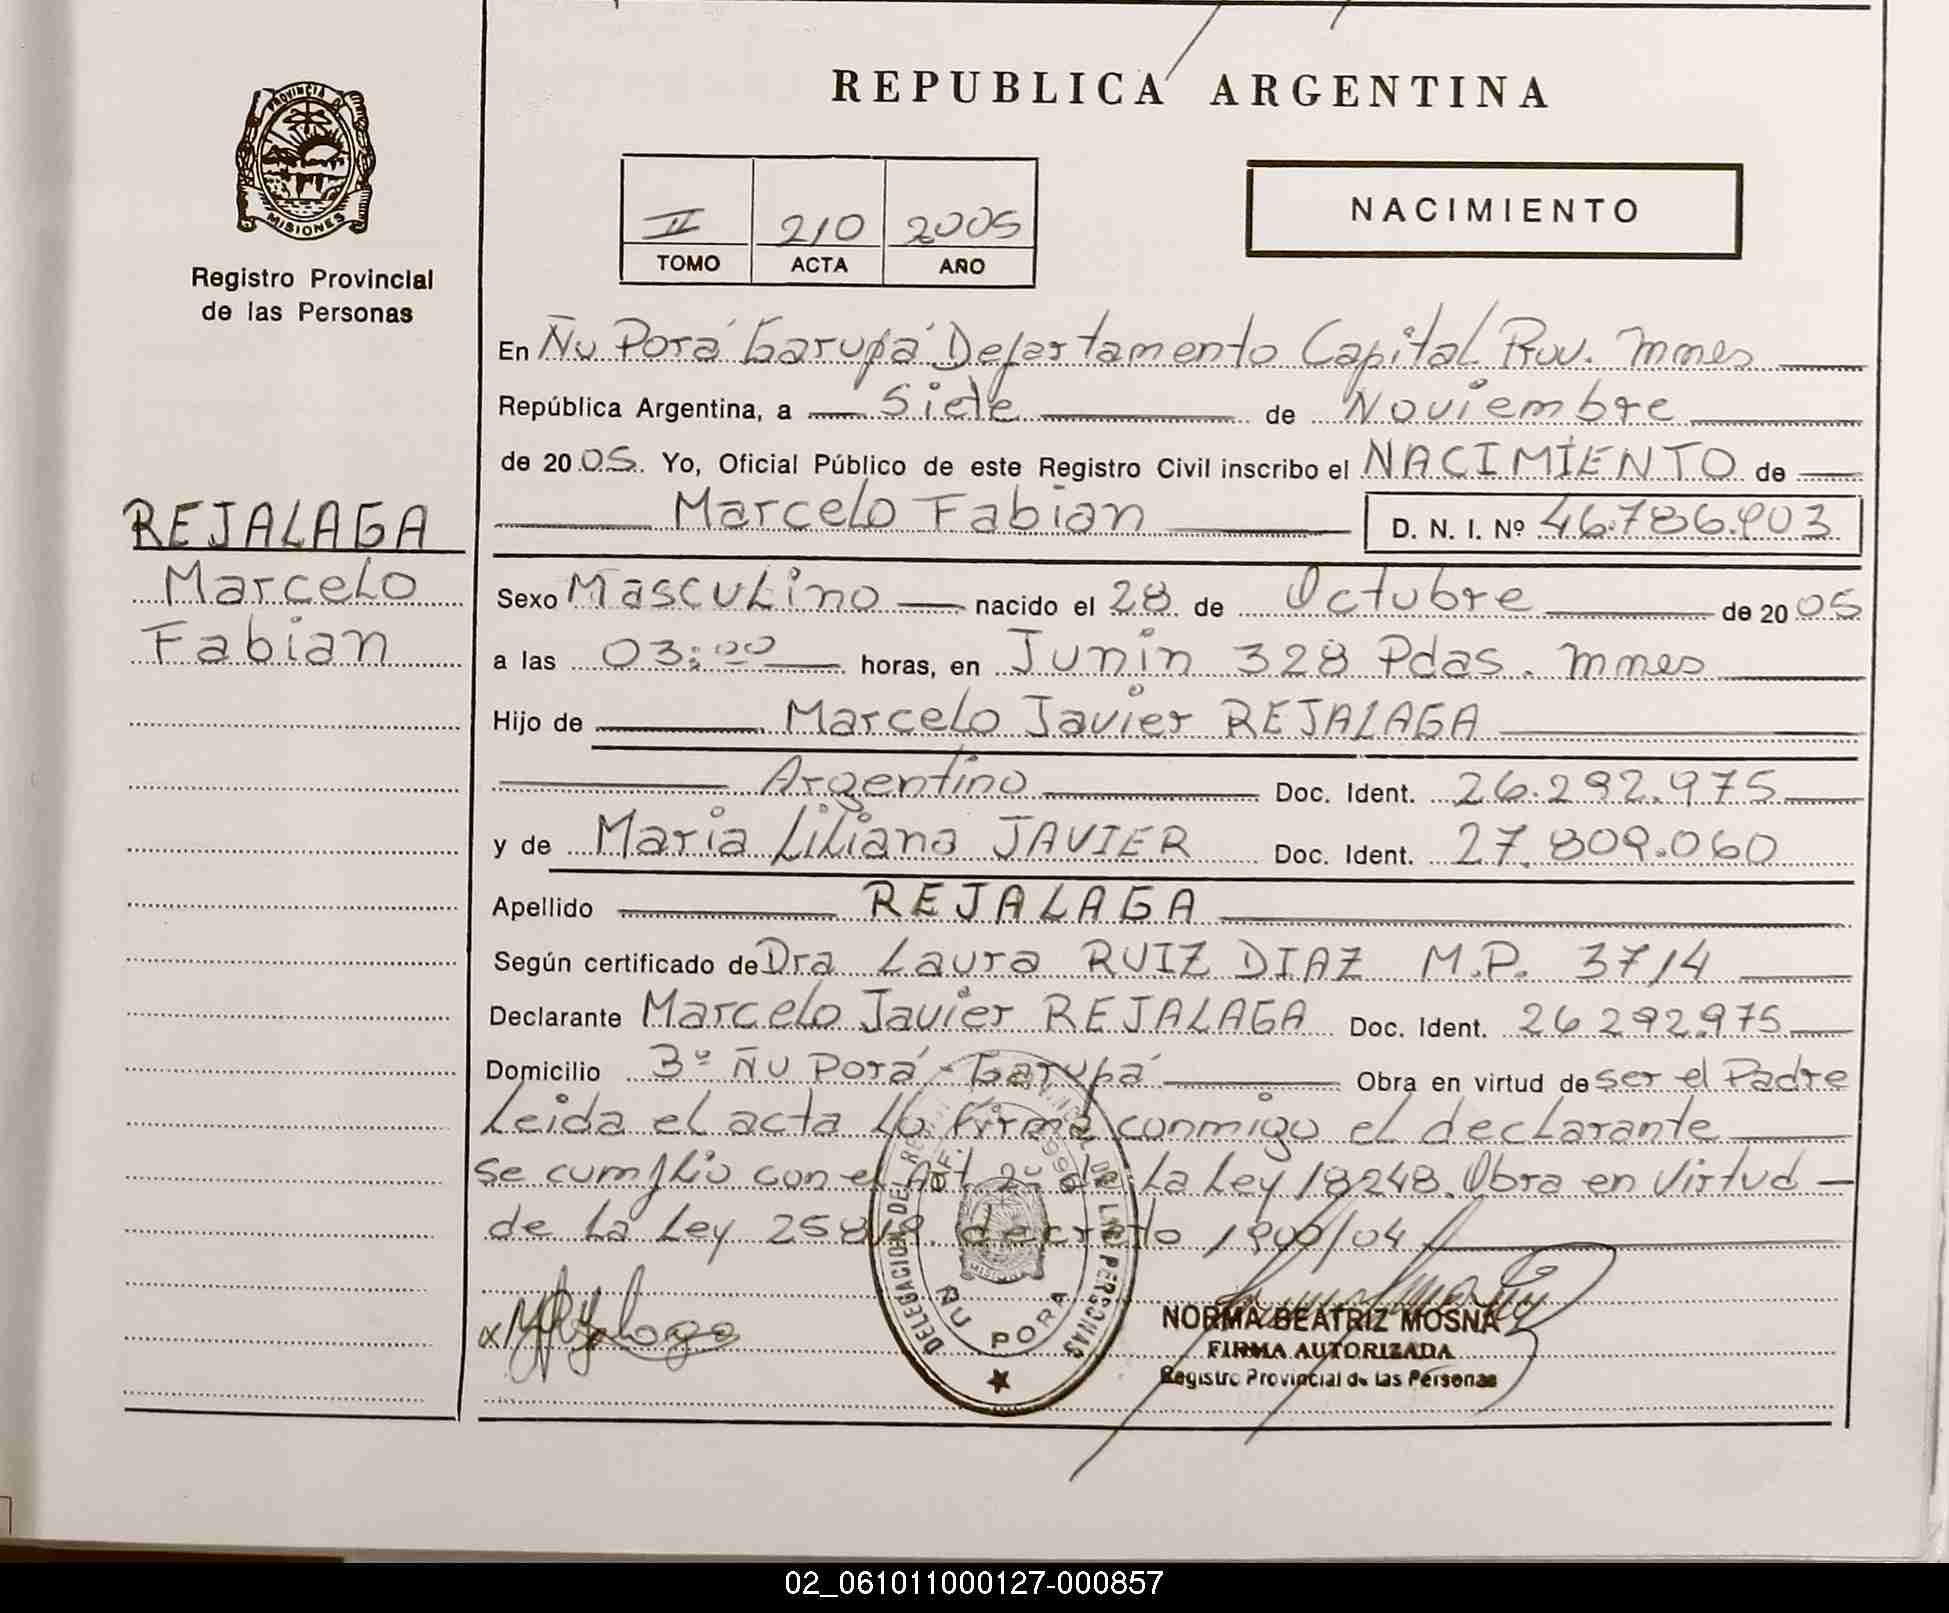 REPUBLICA ARGENTINA
PROVINCIA DE
MISIONES
Registro Provincial
de las Personas
II 210 2005
TOMO ACTA AÑO
NACIMIENTO
En Ñu Porá Garupá Departamento Capital Prov. Mnes
República Argentina, a Siete de Noviembre
de 2005. Yo, Oficial Público de este Registro Civil inscribo el NACIMIENTO de
Marcelo Fabian D. N. I. Nº 46.786.903
REJALAGA
Marcelo
Fabian
Sexo Masculino nacido el 28 de Octubre de 2005
a las 03:00 horas, en Junin 328 Pdas. Mnes
Hijo de Marcelo Javier REJALAGA
Argentino Doc. Ident. 26.292.975
y de Maria Liliana JAVIER Doc. Ident. 27.809.060
Apellido REJALAGA
Según certificado de Dra Laura RUIZ DIAZ M.P. 3714
Declarante Marcelo Javier REJALAGA Doc. Ident. 26292.975
Domicilio Bº Ñu Porá - Garupá Obra en virtud de ser el Padre
Leida el acta la firma conmigo el declarante
se cumplio con el Art 2º de la Ley 18248. Obra en Virtud
de la Ley 25819. decreto 1900/04
DELEGACION DEL PERSONAS
ÑU PORA
NORMA BEATRIZ MOSNA
FIRMA AUTORIZADA
Registro Provincial de las Personas
02_061011000127-000857